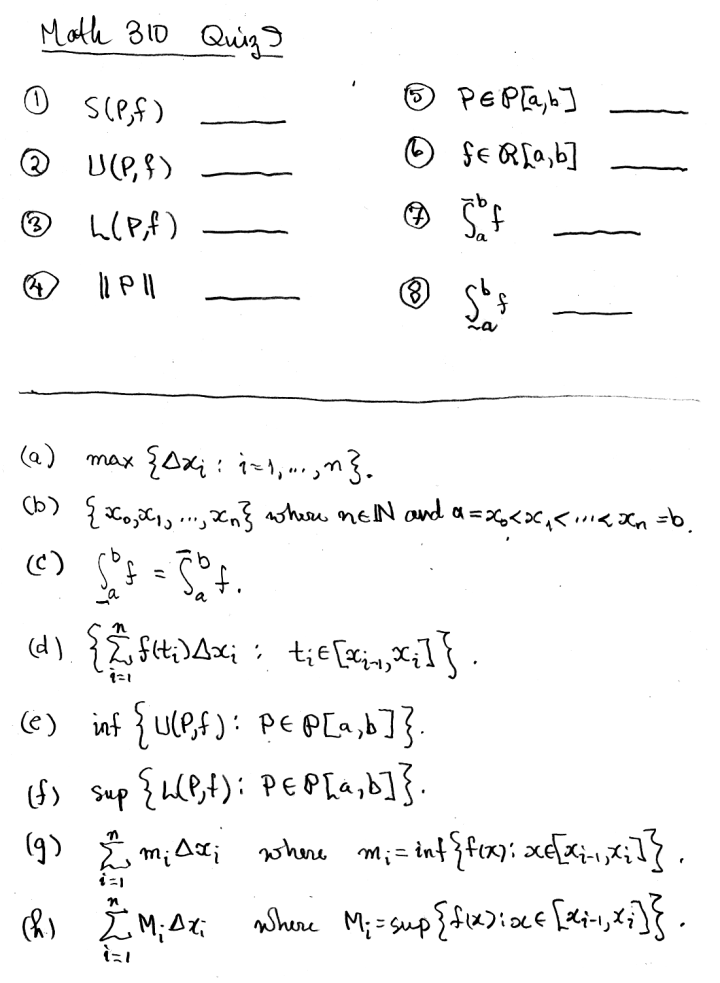 Math 310 Quiz 9
① S(P,f) ____
② U(P,f) ____
③ L(P,f) ____
④ ||P|| ____
⑤ P∈𝒫[a,b] ____
⑥ f∈ℛ[a,b] ____
⑦ ∫̄ₐᵇ f ____
⑧ ∫̲ₐᵇ f ____
(a) max {Δxᵢ : i=1,...,n}.
(b) {x₀,x₁,...,xₙ} where n∈ℕ and a=x₀<x₁<...<xₙ=b.
(c) ∫̲ₐᵇ f = ∫̄ₐᵇ f.
(d) {∑ᵢ₌₁ⁿ f(tᵢ)Δxᵢ : tᵢ∈[xᵢ₋₁,xᵢ]}.
(e) inf {U(P,f): P∈𝒫[a,b]}.
(f) sup {L(P,f): P∈𝒫[a,b]}.
(g) ∑ᵢ₌₁ⁿ mᵢΔxᵢ where mᵢ=inf{f(x): x∈[xᵢ₋₁,xᵢ]}.
(h) ∑ᵢ₌₁ⁿ MᵢΔxᵢ where Mᵢ=sup{f(x): x∈[xᵢ₋₁,xᵢ]}.